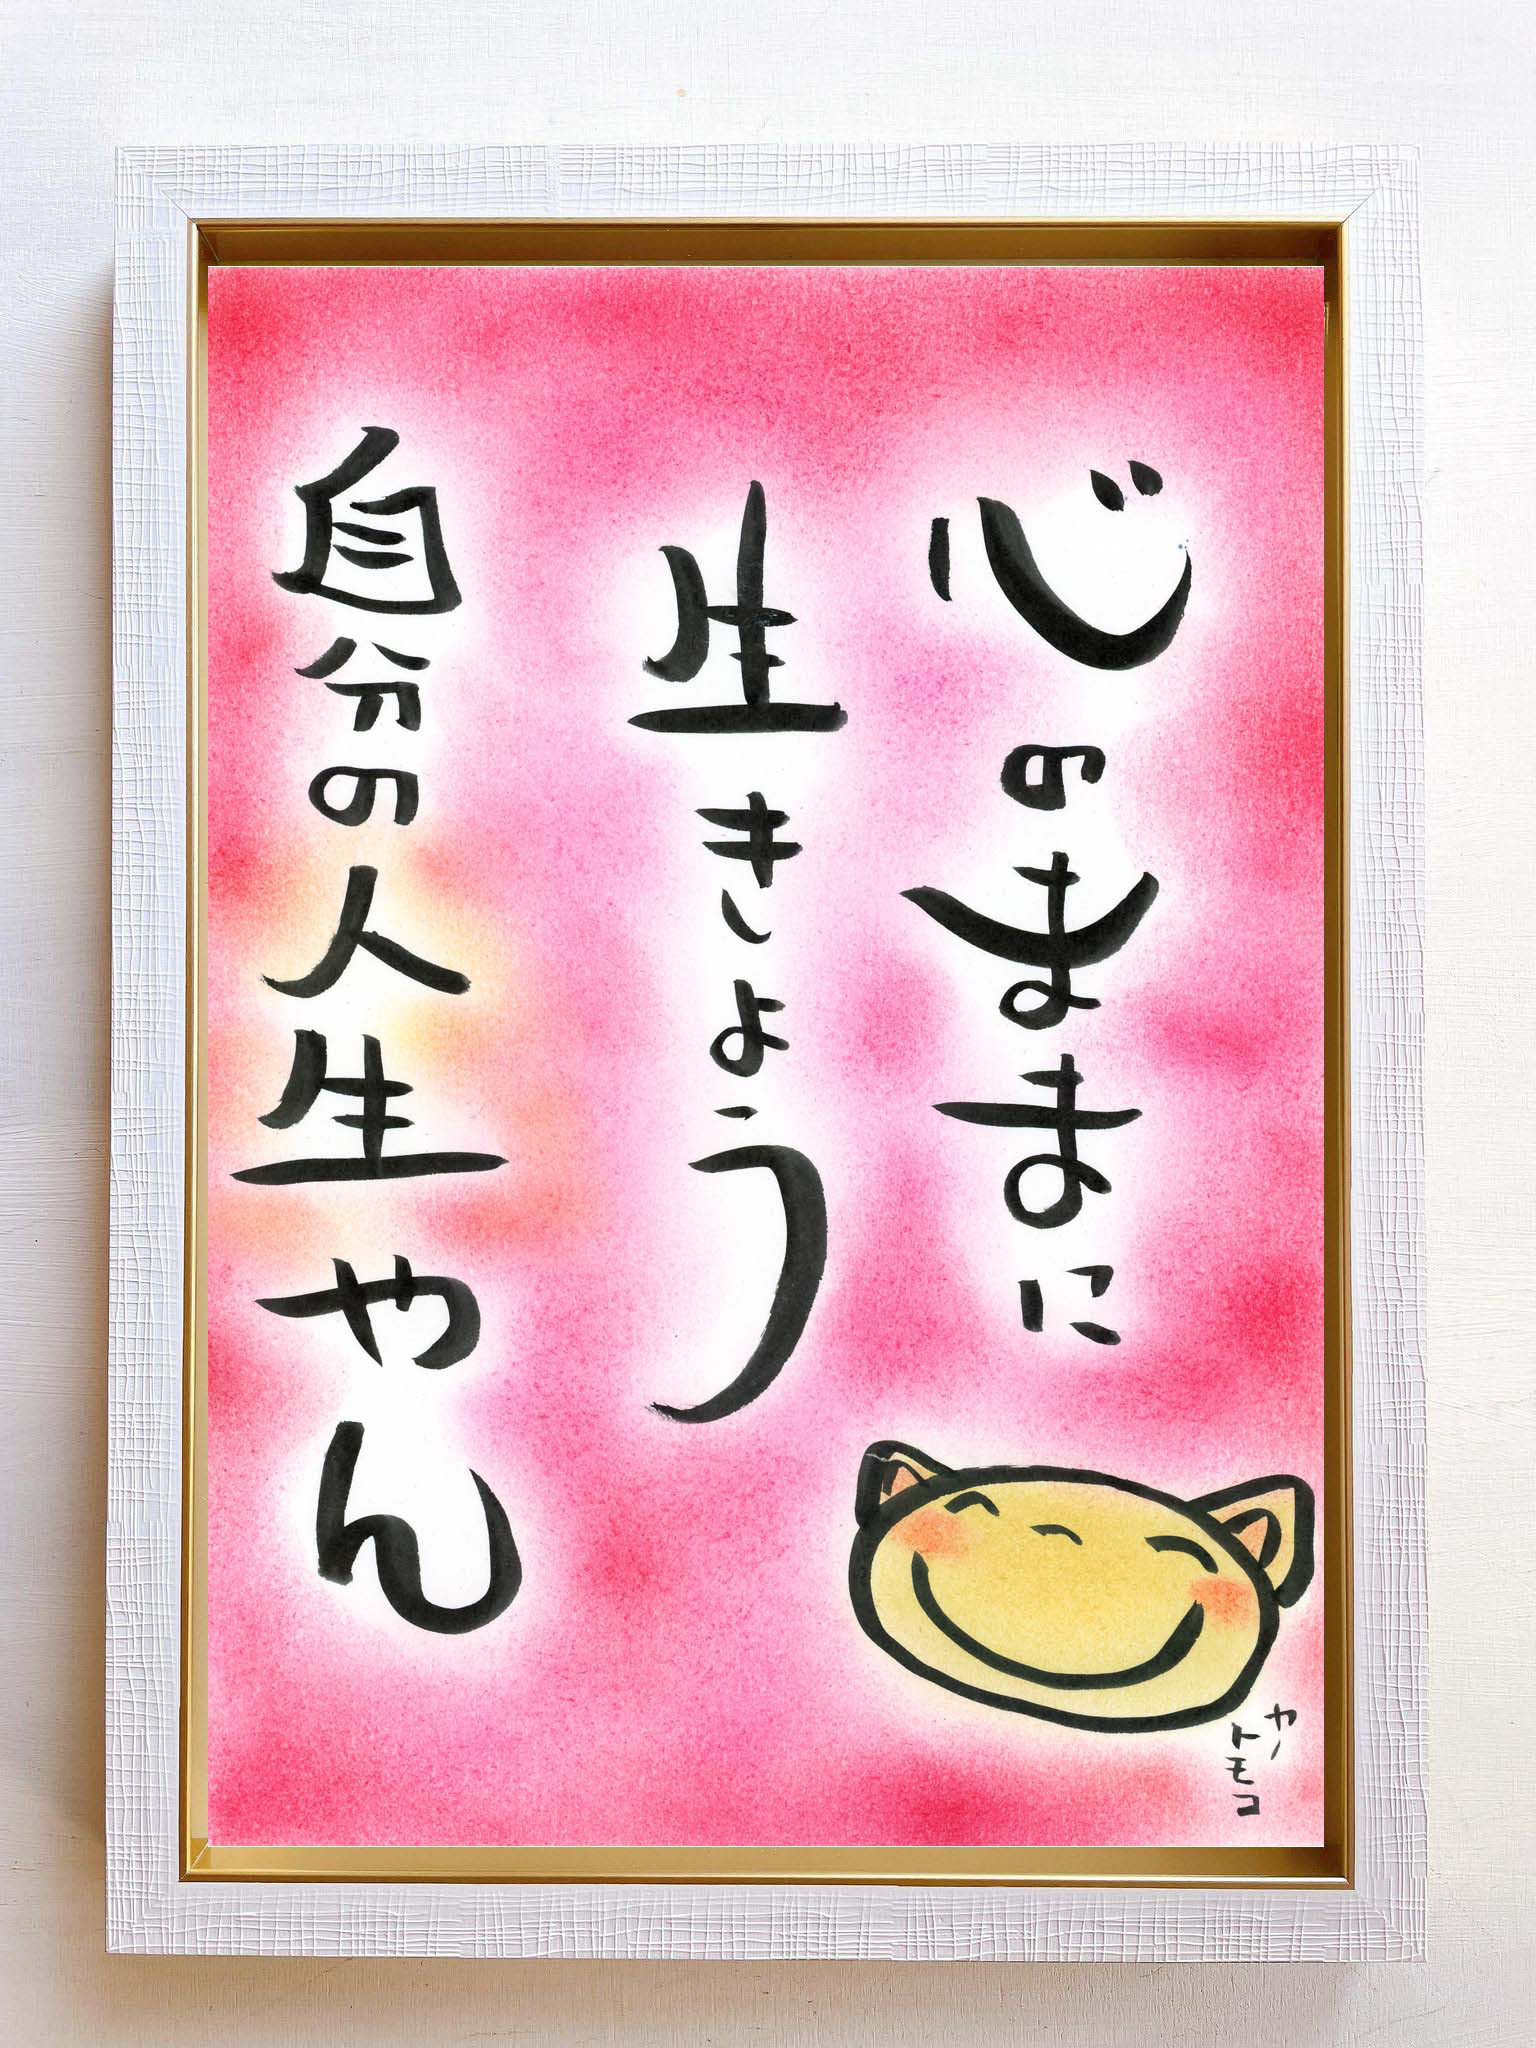 心のままに
生きよう
自分の人生やん
カノ
トモコ